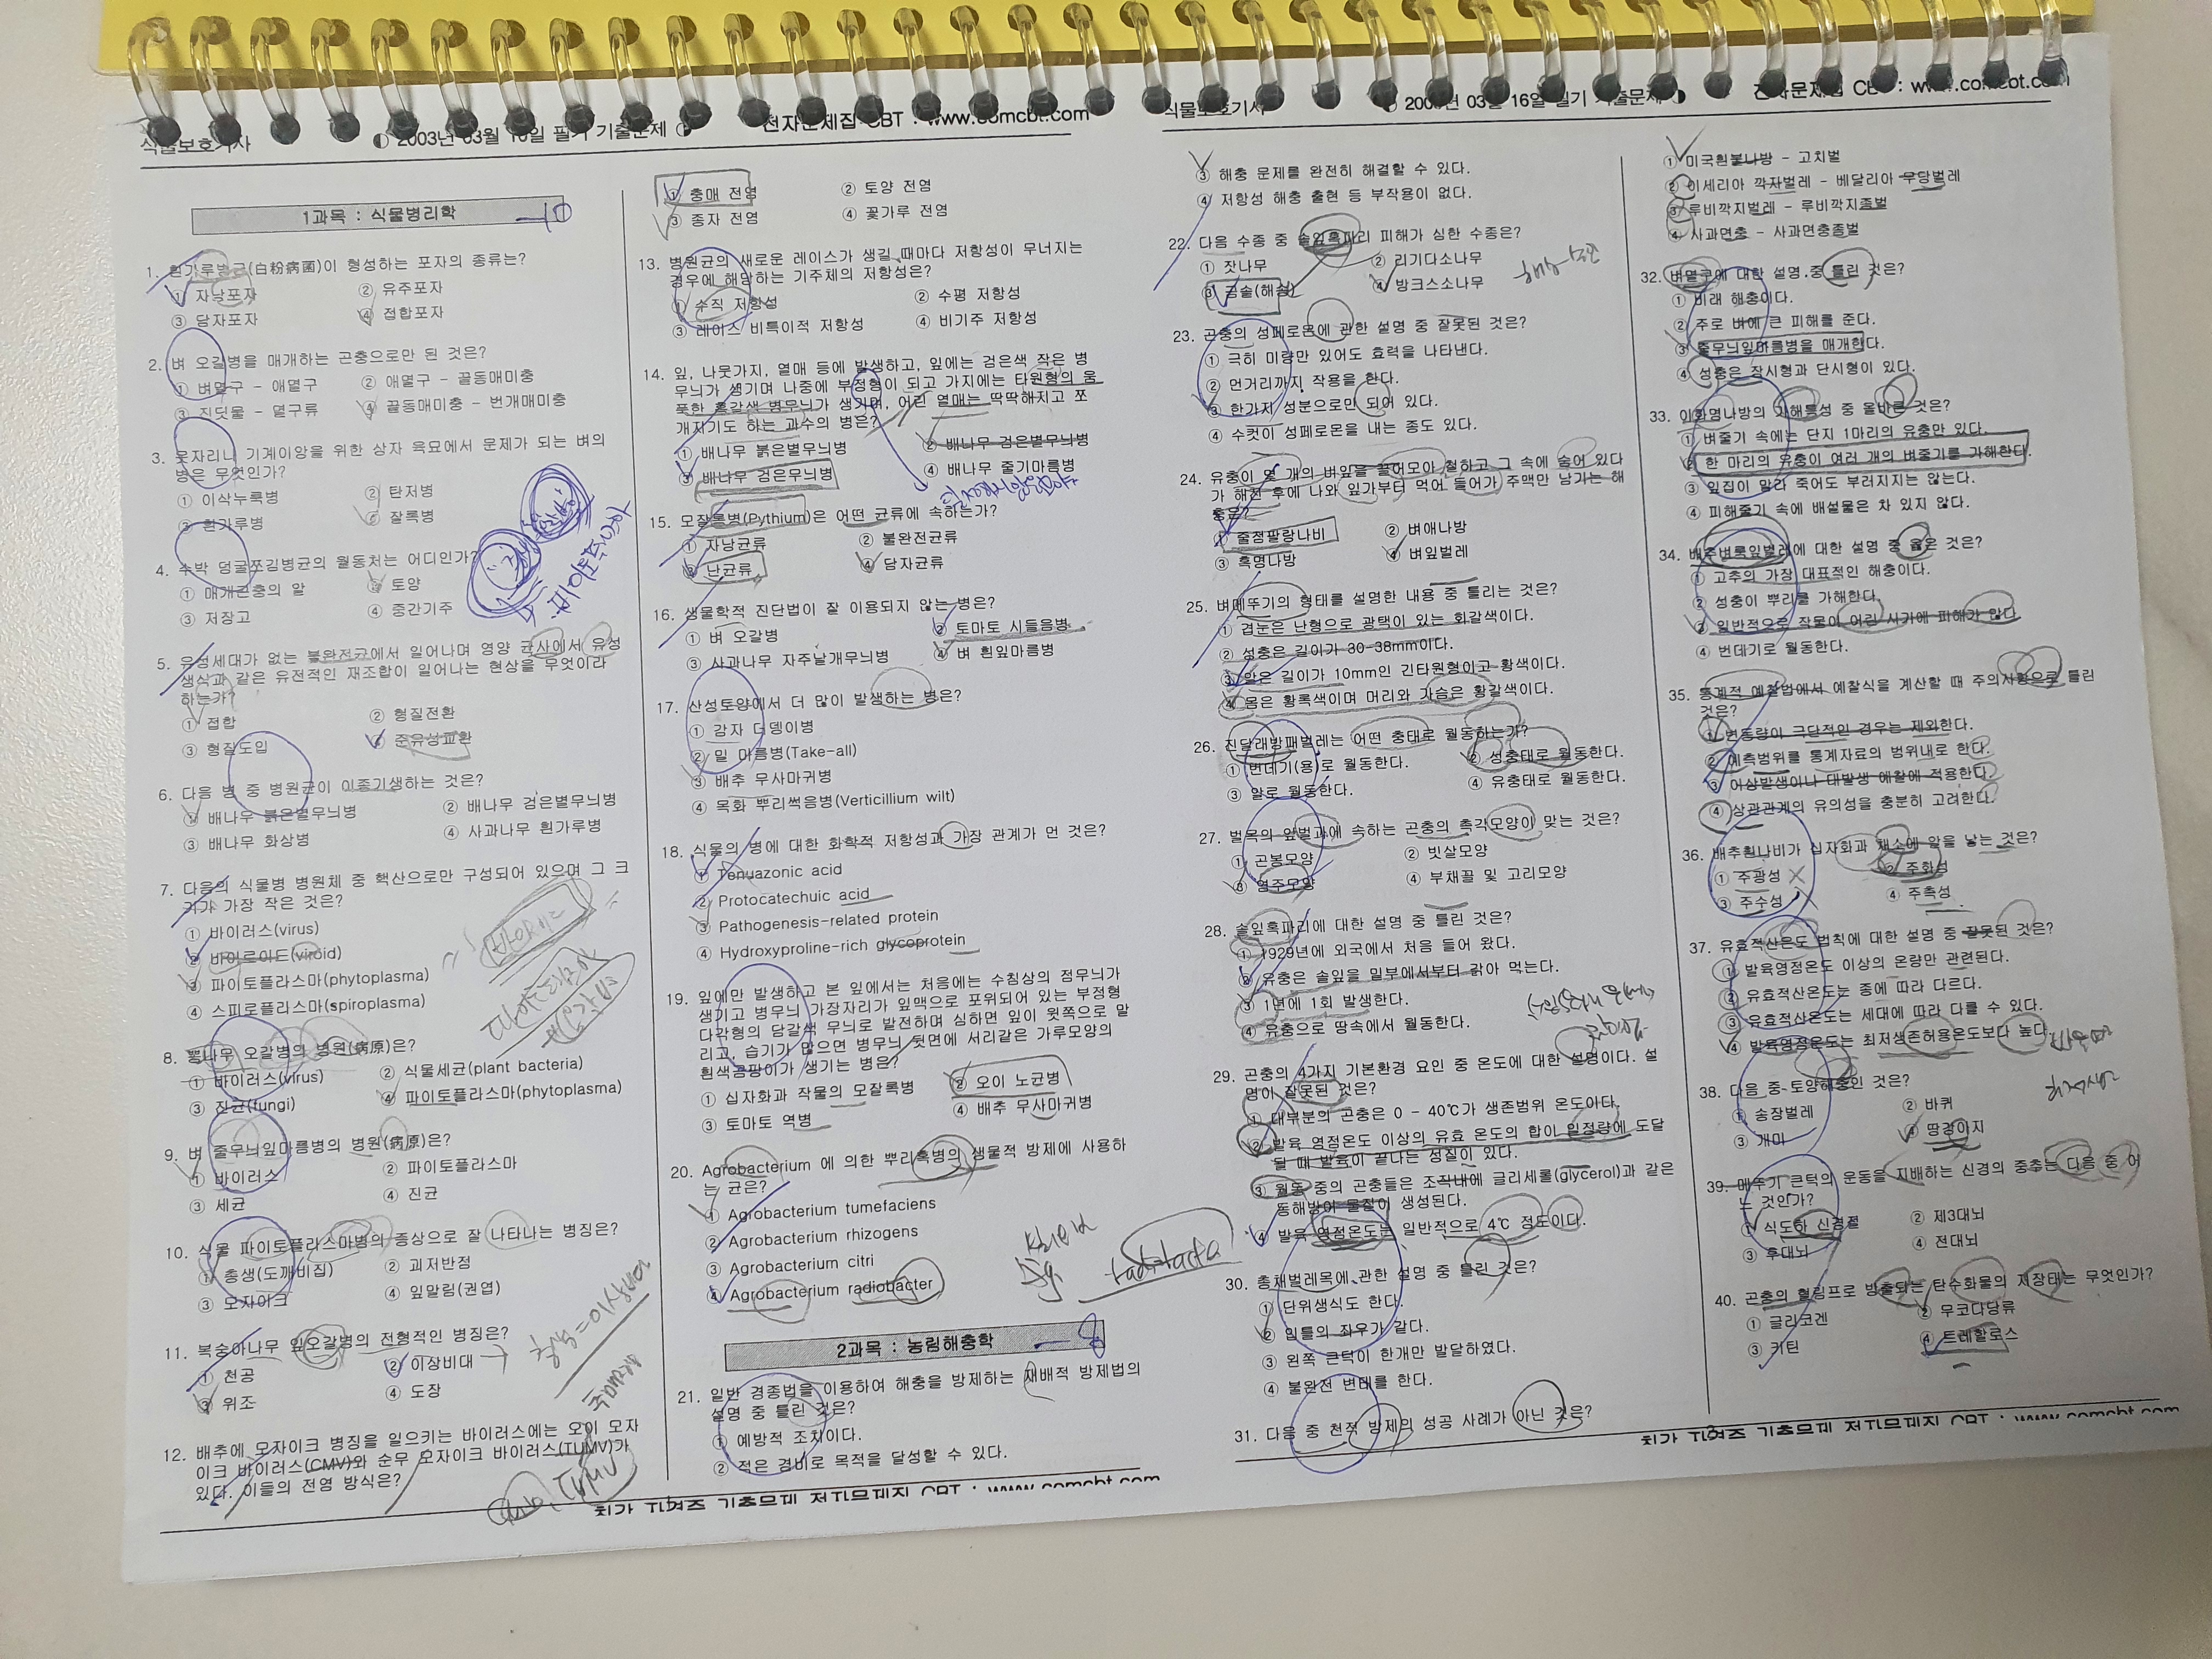 식물보호기사
◐ 2003년 03월 16일 필기 기출문제 ◑
전자문제집 CBT : www.comcbt.com
1과목 : 식물병리학
-10
1. 흰가루병균(白粉病菌)이 형성하는 포자의 종류는?
① 자낭포자 ② 유주포자
③ 담자포자 ④ 접합포자
2. 벼 오갈병을 매개하는 곤충으로만 된 것은?
① 벼멸구 - 애멸구 ② 애멸구 - 끝동매미충
③ 진딧물 - 멸구류 ④ 끝동매미충 - 번개매미충
3. 못자리나 기계이앙을 위한 상자 육묘에서 문제가 되는 벼의
병은 무엇인가?
① 이삭누룩병 ② 탄저병
③ 흰가루병 ④ 잘록병
4. 수박 덩굴쪼김병균의 월동처는 어디인가?
① 매개곤충의 알 ② 토양
③ 저장고 ④ 중간기주
5. 유성세대가 없는 불완전균에서 일어나며 영양 균사에서 유성
생식과 같은 유전적인 재조합이 일어나는 현상을 무엇이라
하는가?
① 접합 ② 형질전환
③ 형질도입 ④ 준유성교환
6. 다음 병 중 병원균이 이종기생하는 것은?
① 배나무 붉은별무늬병 ② 배나무 검은별무늬병
③ 배나무 화상병 ④ 사과나무 흰가루병
7. 다음의 식물병 병원체 중 핵산으로만 구성되어 있으며 그 크
기가 가장 작은 것은?
① 바이러스(virus)
② 바이로이드(viroid)
③ 파이토플라스마(phytoplasma)
④ 스피로플라스마(spiroplasma)
8. 뽕나무 오갈병의 병원(病原)은?
① 바이러스(virus) ② 식물세균(plant bacteria)
③ 진균(fungi) ④ 파이토플라스마(phytoplasma)
9. 벼 줄무늬잎마름병의 병원(病原)은?
① 바이러스 ② 파이토플라스마
③ 세균 ④ 진균
10. 식물 파이토플라스마병의 증상으로 잘 나타나는 병징은?
① 총생(도깨비집) ② 괴저반점
③ 모자이크 ④ 잎말림(권엽)
11. 복숭아나무 잎오갈병의 전형적인 병징은?
① 천공 ② 이상비대
③ 위조 ④ 도장
12. 배추에 모자이크 병징을 일으키는 바이러스에는 오이 모자
이크 바이러스(CMV)와 순무 모자이크 바이러스(TUMV)가
있다. 이들의 전염 방식은?
① 충매 전염 ② 토양 전염
③ 종자 전염 ④ 꽃가루 전염
13. 병원균의 새로운 레이스가 생길 때마다 저항성이 무너지는
경우에 해당하는 기주체의 저항성은?
① 수직 저항성 ② 수평 저항성
③ 레이스 비특이적 저항성 ④ 비기주 저항성
14. 잎, 나뭇가지, 열매 등에 발생하고, 잎에는 검은색 작은 병
무늬가 생기며 나중에 부정형이 되고 가지에는 타원형의 움
푹한 흑갈색 병무늬가 생기며, 어린 열매는 딱딱해지고 쪼
개지기도 하는 과수의 병은?
① 배나무 붉은별무늬병 ② 배나무 검은별무늬병
③ 배나무 검은무늬병 ④ 배나무 줄기마름병
15. 모잘록병(Pythium)은 어떤 균류에 속하는가?
① 자낭균류 ② 불완전균류
③ 난균류 ④ 담자균류
16. 생물학적 진단법이 잘 이용되지 않는 병은?
① 벼 오갈병 ② 토마토 시들음병
③ 사과나무 자주날개무늬병 ④ 벼 흰잎마름병
17. 산성토양에서 더 많이 발생하는 병은?
① 감자 더뎅이병
② 밀 마름병(Take-all)
③ 배추 무사마귀병
④ 목화 뿌리썩음병(Verticillium wilt)
18. 식물의 병에 대한 화학적 저항성과 가장 관계가 먼 것은?
① Tenuazonic acid
② Protocatechuic acid
③ Pathogenesis-related protein
④ Hydroxyproline-rich glycoprotein
19. 잎에만 발생하고 본 잎에서는 처음에는 수침상의 점무늬가
생기고 병무늬 가장자리가 잎맥으로 포위되어 있는 부정형
다각형의 담갈색 무늬로 발전하며 심하면 잎이 윗쪽으로 말
리고, 습기가 많으면 병무늬 뒷면에 서리같은 가루모양의
흰색곰팡이가 생기는 병은?
① 십자화과 작물의 모잘록병 ② 오이 노균병
③ 토마토 역병 ④ 배추 무사마귀병
20. Agrobacterium 에 의한 뿌리혹병의 생물적 방제에 사용하
는 균은?
① Agrobacterium tumefaciens
② Agrobacterium rhizogens
③ Agrobacterium citri
④ Agrobacterium radiobacter
2과목 : 농림해충학
-8
21. 일반 경종법을 이용하여 해충을 방제하는 재배적 방제법의
설명 중 틀린 것은?
① 예방적 조치이다.
② 적은 경비로 목적을 달성할 수 있다.
식물보호기사
03월 16일 필기 기출문제 ◑
전자문제집 CBT : www.comcbt.com
③ 해충 문제를 완전히 해결할 수 있다.
④ 저항성 해충 출현 등 부작용이 없다.
22. 다음 수종 중 솔잎혹파리 피해가 심한 수종은?
① 잣나무 ② 리기다소나무
③ 곰솔(해송) ④ 방크스소나무
23. 곤충의 성페로몬에 관한 설명 중 잘못된 것은?
① 극히 미량만 있어도 효력을 나타낸다.
② 먼거리까지 작용을 한다.
③ 한가지 성분으로만 되어 있다.
④ 수컷이 성페로몬을 내는 종도 있다.
24. 유충이 몇 개의 벼잎을 끌어모아 철하고 그 속에 숨어 있다
가 해진 후에 나와 잎가부터 먹어 들어가 주맥만 남기는 해
충은?
① 줄점팔랑나비 ② 벼애나방
③ 흑명나방 ④ 벼잎벌레
25. 벼메뚜기의 형태를 설명한 내용 중 틀리는 것은?
① 겹눈은 난형으로 광택이 있는 회갈색이다.
② 성충은 길이가 30-38mm이다.
③ 알은 길이가 10mm인 긴타원형이고 황색이다.
④ 몸은 황록색이며 머리와 가슴은 황갈색이다.
26. 진달래방패벌레는 어떤 충태로 월동하는가?
① 번데기(용)로 월동한다. ② 성충태로 월동한다.
③ 알로 월동한다. ④ 유충태로 월동한다.
27. 벌목의 잎벌과에 속하는 곤충의 촉각모양이 맞는 것은?
① 곤봉모양 ② 빗살모양
③ 염주모양 ④ 부채꼴 및 고리모양
28. 솔잎혹파리에 대한 설명 중 틀린 것은?
① 1929년에 외국에서 처음 들어 왔다.
② 유충은 솔잎을 밑부에서부터 갉아 먹는다.
③ 1년에 1회 발생한다.
④ 유충으로 땅속에서 월동한다.
29. 곤충의 4가지 기본환경 요인 중 온도에 대한 설명이다. 설
명이 잘못된 것은?
① 대부분의 곤충은 0 - 40℃가 생존범위 온도이다.
② 발육 영점온도 이상의 유효 온도의 합이 일정량에 도달
될 때 발육이 끝나는 성질이 있다.
③ 월동 중의 곤충들은 조직내에 글리세롤(glycerol)과 같은
동해방어 물질이 생성된다.
④ 발육 영점온도는 일반적으로 4℃ 정도이다.
30. 총채벌레목에 관한 설명 중 틀린 것은?
① 단위생식도 한다.
② 입틀의 좌우가 같다.
③ 왼쪽 큰턱이 한개만 발달하였다.
④ 불완전 변태를 한다.
31. 다음 중 천적 방제의 성공 사례가 아닌 것은?
① 미국흰불나방 - 고치벌
② 이세리아 깍지벌레 - 베달리아 무당벌레
③ 루비깍지벌레 - 루비깍지좀벌
④ 사과면충 - 사과면충좀벌
32. 벼멸구에 대한 설명 중 틀린 것은?
① 비래 해충이다.
② 주로 벼에 큰 피해를 준다.
③ 줄무늬잎마름병을 매개한다.
④ 성충은 장시형과 단시형이 있다.
33. 이화명나방의 가해특성 중 올바른 것은?
① 벼줄기 속에는 단지 1마리의 유충만 있다.
② 한 마리의 유충이 여러 개의 벼줄기를 가해한다.
③ 잎집이 말라 죽어도 부러지지는 않는다.
④ 피해줄기 속에 배설물은 차 있지 않다.
34. 배추벼룩잎벌레에 대한 설명 중 옳은 것은?
① 고추의 가장 대표적인 해충이다.
② 성충이 뿌리를 가해한다.
③ 일반적으로 작물이 어린 시기에 피해가 많다.
④ 번데기로 월동한다.
35. 통계적 예찰법에서 예찰식을 계산할 때 주의사항으로 틀린
것은?
① 변동량이 극단적인 경우는 제외한다.
② 예측범위를 통계자료의 범위내로 한다.
③ 이상발생이나 대발생 예찰에 적용한다.
④ 상관관계의 유의성을 충분히 고려한다.
36. 배추흰나비가 십자화과 채소에 알을 낳는 것은?
① 주광성 ② 주화성
③ 주수성 ④ 주촉성
37. 유효적산온도 법칙에 대한 설명 중 잘못된 것은?
① 발육영점온도 이상의 온량만 관련된다.
② 유효적산온도는 종에 따라 다르다.
③ 유효적산온도는 세대에 따라 다를 수 있다.
④ 발육영점온도는 최저생존허용온도보다 높다.
38. 다음 중 토양해충인 것은?
① 송장벌레 ② 바퀴
③ 개미 ④ 땅강아지
39. 메뚜기 큰턱의 운동을 지배하는 신경의 중추는 다음 중 어
느 것인가?
① 식도하 신경절 ② 제3대뇌
③ 후대뇌 ④ 전대뇌
40. 곤충의 혈림프로 방출되는 탄수화물의 저장태는 무엇인가?
① 글리코겐 ② 무코다당류
③ 키틴 ④ 트레할로스